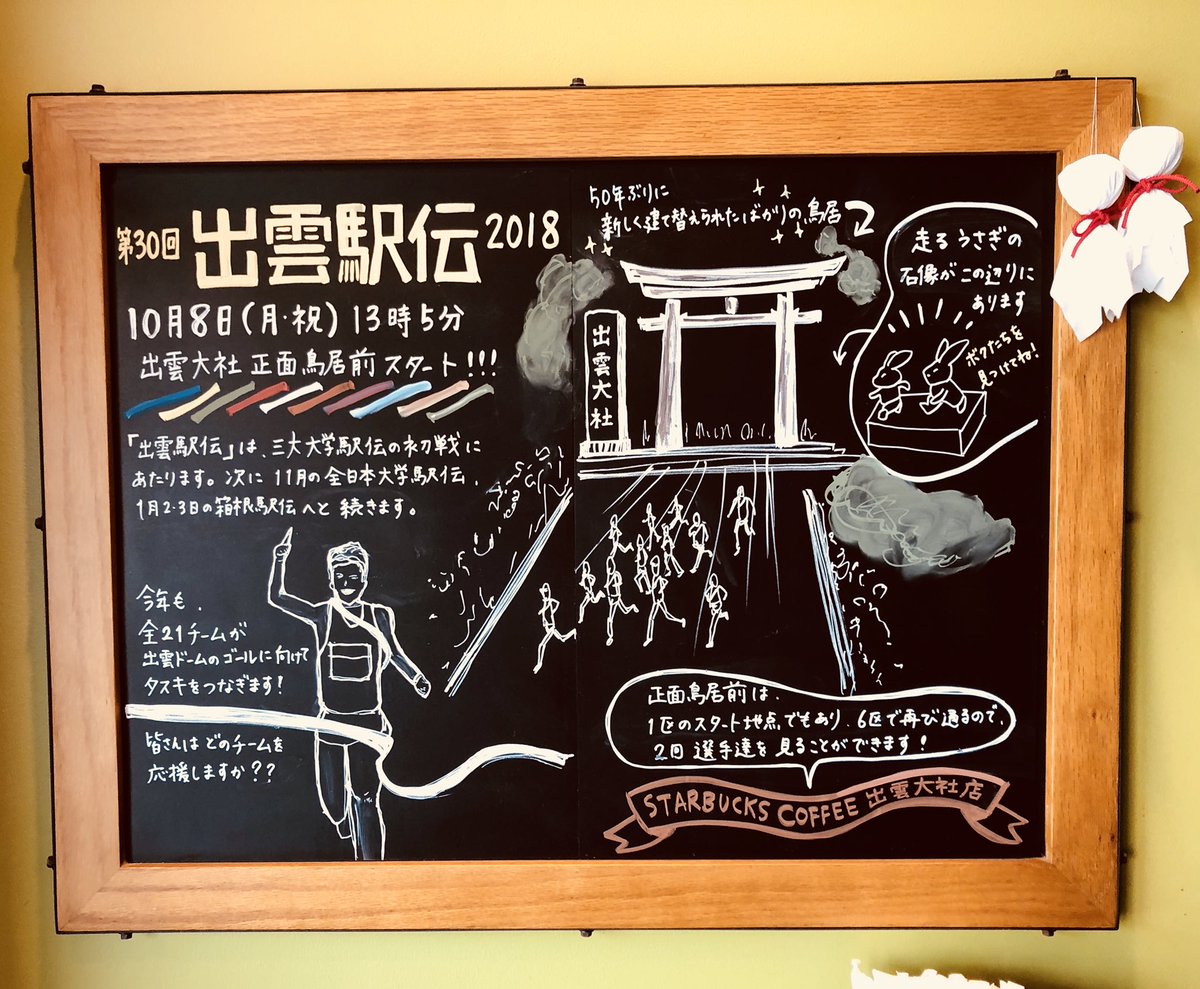 第30回 出雲駅伝 2018
10月8日(月・祝) 13時5分
出雲大社 正面鳥居前 スタート!!!
「出雲駅伝」は、三大大学駅伝の初戦に
あたります。次に 11月の全日本大学駅伝、
1月2・3日の箱根駅伝へと 続きます。
今年も、
全21チームが
出雲ドームのゴールに向けて
タスキをつなぎます!
皆さんは どのチームを
応援しますか??
50年ぶりに
新しく建て替えられたばかりの鳥居
出雲大社
走る うさぎの
石像が この辺りに
あります
ボクたちを
見つけてね!
正面鳥居前は、
1区のスタート地点でもあり、6区で再び通るので、
2回 選手達を 見ることができます!
STARBUCKS COFFEE 出雲大社店